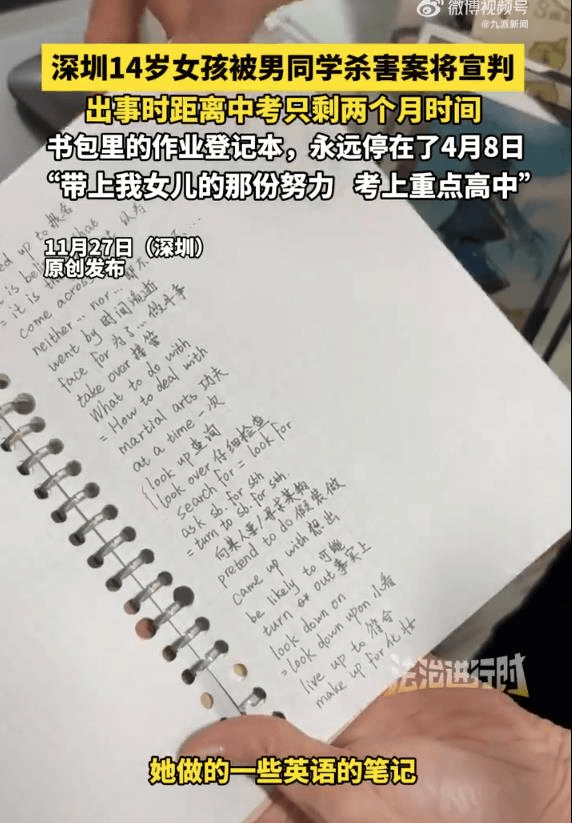 微博视频号
@九派新闻
深圳14岁女孩被男同学杀害案将宣判
出事时距离中考只剩两个月时间
书包里的作业登记本，永远停在了4月8日
“带上我女儿的那份努力 考上重点高中”
11月27日（深圳）
原创发布
up to 报名
come across
neither... nor...
went by 时间流逝
face for 为了...做斗争
take over 接管
What to do with
= How to deal with
martial arts 功夫
at a time 一次
look up 查询
look over 仔细检查
search for = look for
ask sb. for sth
= turn to sb. for sth.
向某人要/寻求某物
pretend to do 假装做
came up with 想出
be likely to 可能
turn out 事实上
look down on
= look down upon 小看
live up to 符合
make up for 化妆
法治进行时
她做的一些英语的笔记